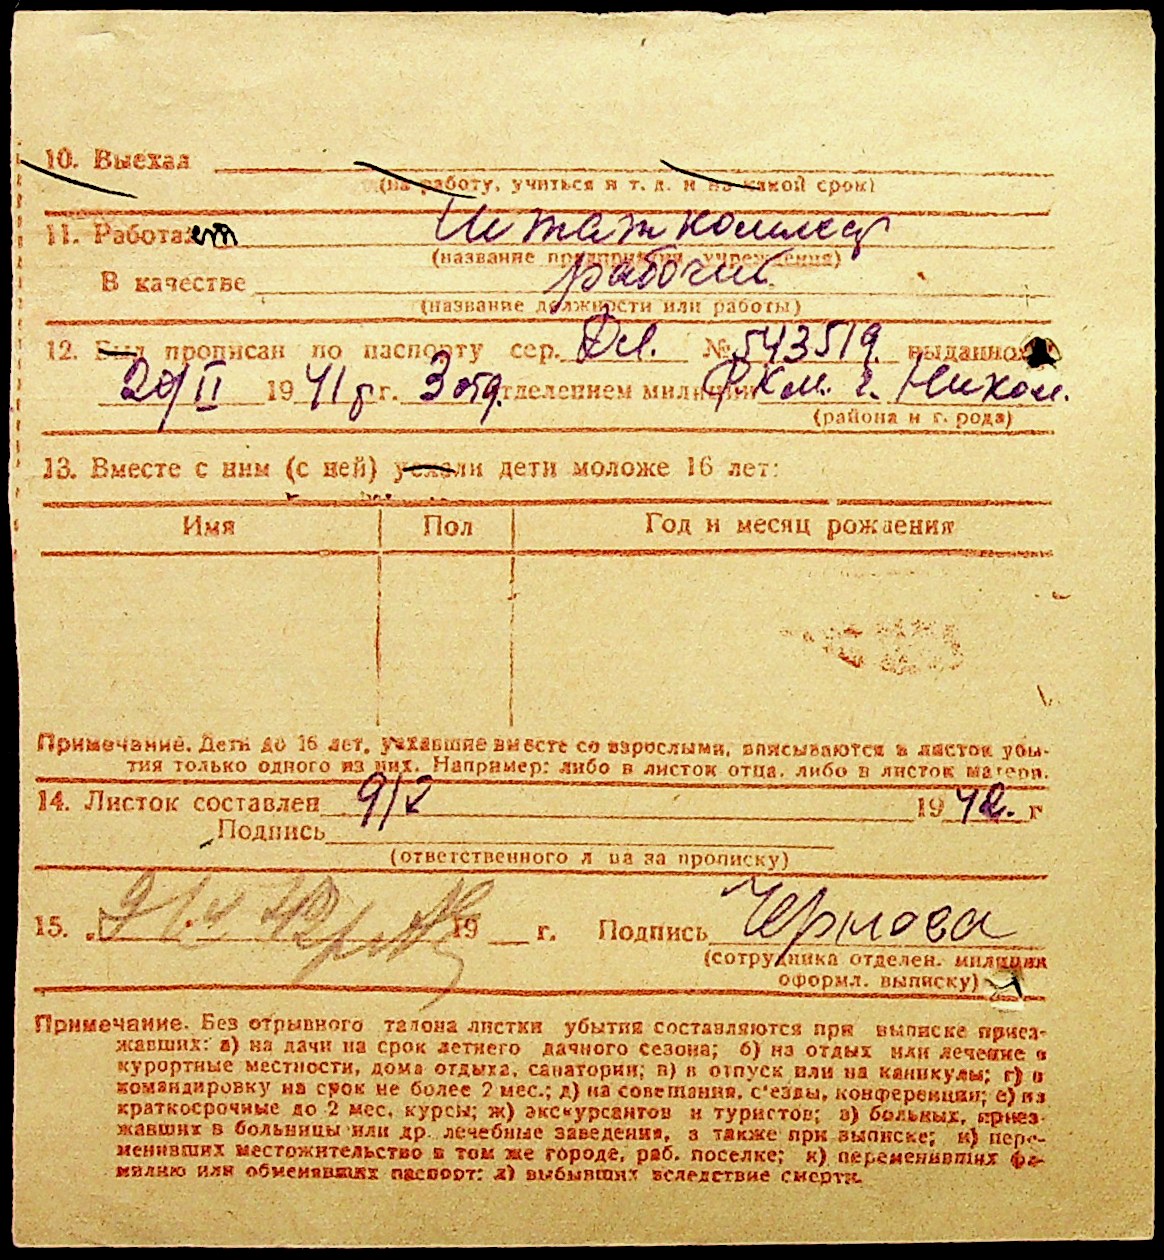 10. Выехал
(на работу, учиться и т. д. и на какой срок)
11. Работает
(название предприятия, учреждения)
В качестве рабочий
(название должности или работы)
12. Был прописан по паспорту сер. № 543519. выданного
20/II 1941 г. г. 3 отд. отделением милиции РКМ. г.
(района и города)
13. Вместе с ним (с ней) уехали дети моложе 16 лет:
Имя Пол Год и месяц рождения
Примечание. Дети до 16 лет, уехавшие вместе со взрослыми, вписываются в листок убы-
тия только одного из них. Например: либо в листок отца, либо в листок матери.
14. Листок составлен 9/X 1942. г
Подпись
(ответственного лица за прописку)
15. 19 г. Подпись Чернова
(сотрудника отделен. милиции
оформл. выписку)
Примечание. Без отрывного талона листки убытия составляются при выписке приез-
жавших: а) на дачи на срок летнего дачного сезона; б) на отдых или лечение в
курортные местности, дома отдыха, санатории; в) в отпуск или на каникулы; г) в
командировку на срок не более 2 мес.; д) на совещания, с'езды, конференции; е) на
краткосрочные до 2 мес. курсы; ж) экскурсантов и туристов; з) больных, приез-
жавших в больницы или др. лечебные заведения, а также при выписке; и) пере-
менивших местожительство в том же городе, раб. поселке; к) переменивших фа-
милию или обменявших паспорт: л) выбывших вследствие смерти.